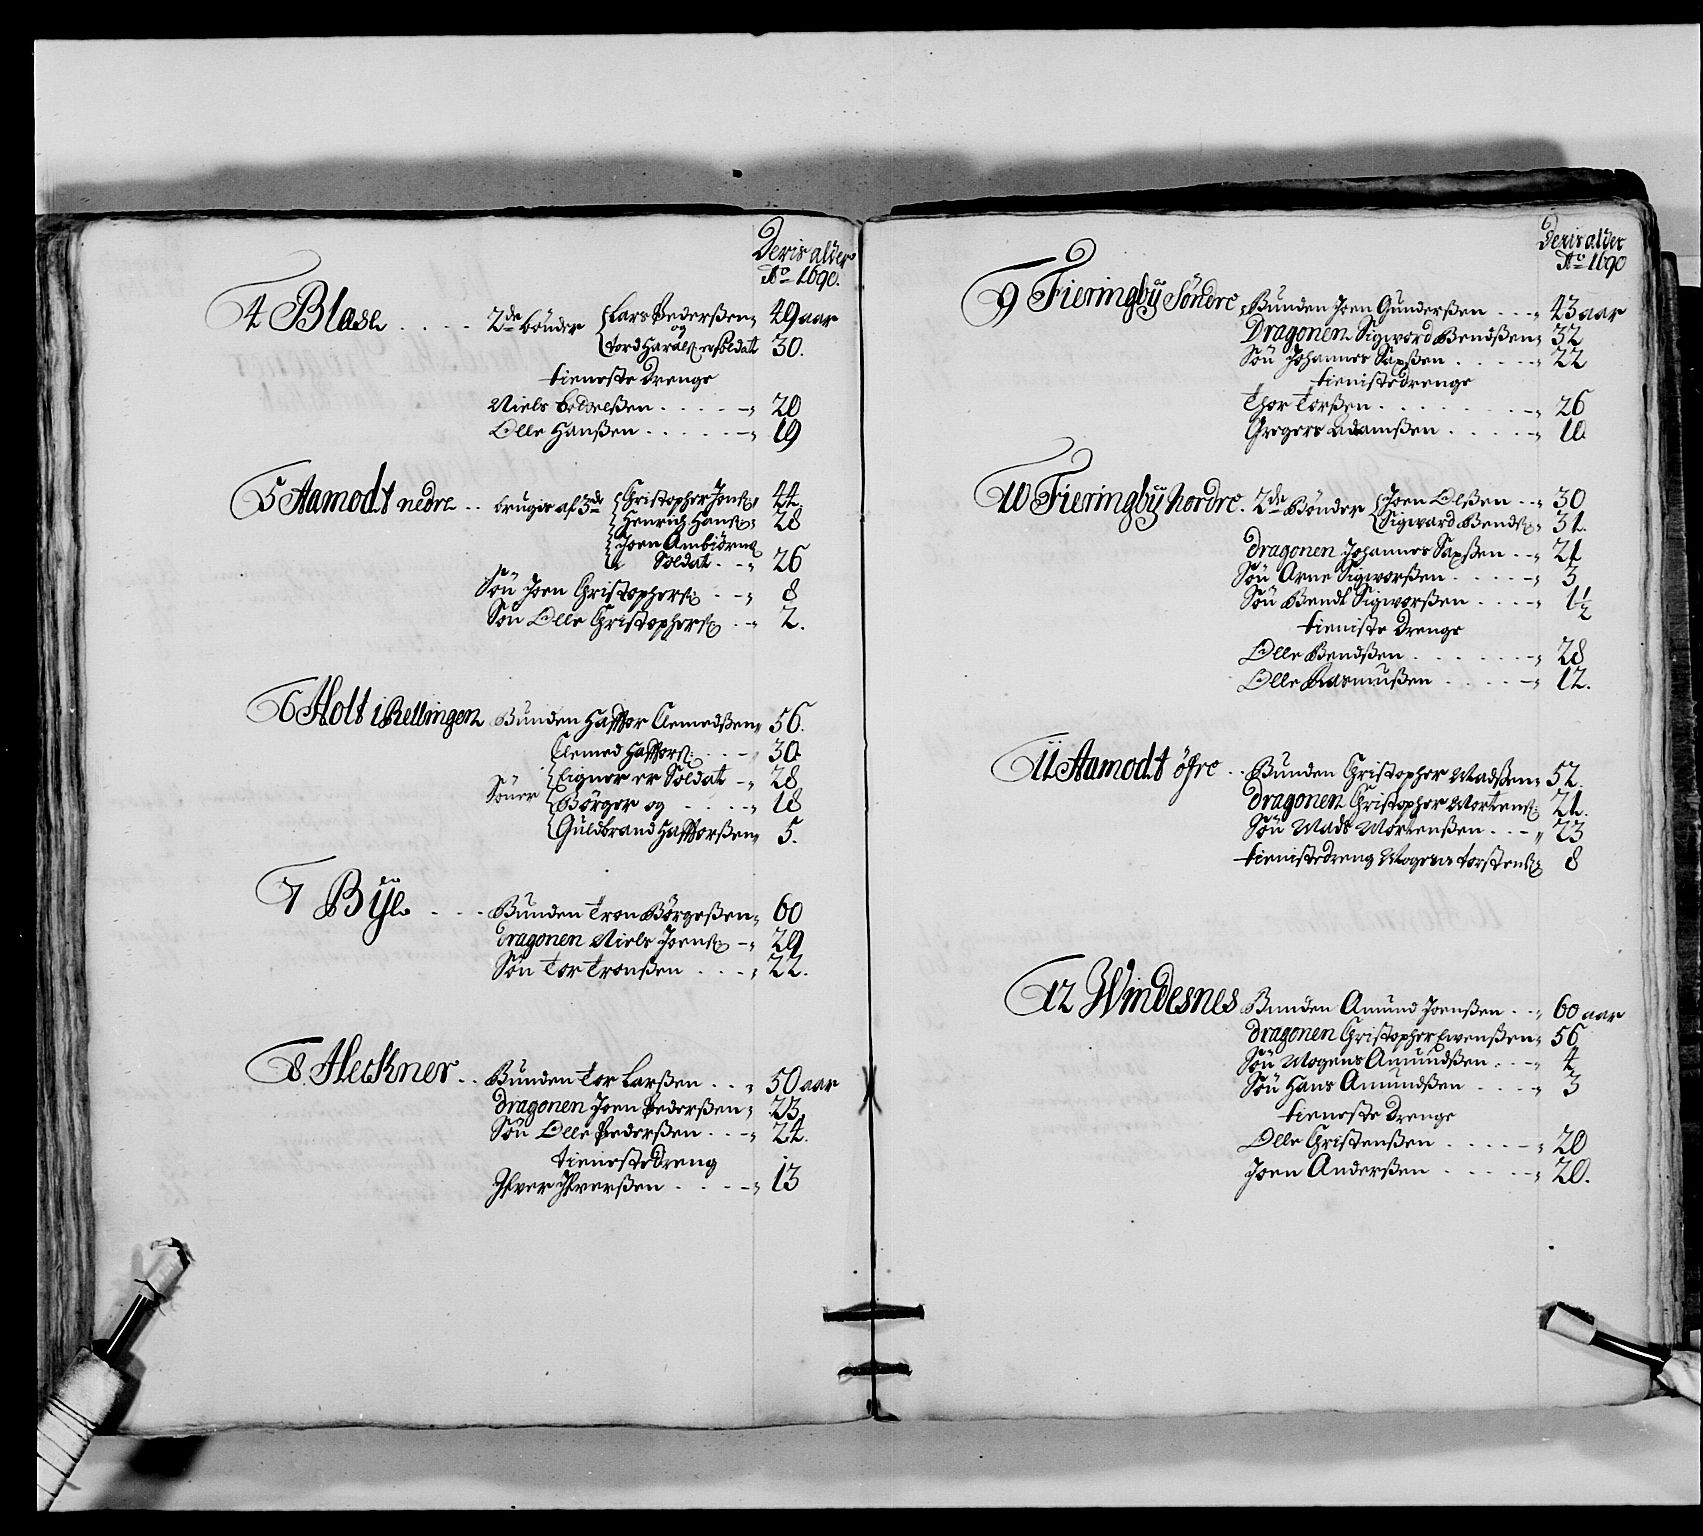 Deris alder
Aō 1690.
4 Blase . . . . 2de bönder Lars Pederßen 49 aar
og
Tord Harals: er Soldat 30.
tieneste drenge
Niels . . . . 20
Olle Hanßen . . . . 19
5 Aamodt nedre . . bruges af 3de Christopher Jens: 44.
Henrich Hans: 28
Joen Ambiörns:
Soldat . . 26
Sön Joen Christophers: . . 8
Sön Olle Christophers: . . 2.
6 Holt i Rellingen Bunden Haffvor Clemedßen 56.
Clemed Haffvors: . . . 30.
Eignor er Soldat . . 28
Söner
Börger og . . . . 18
Guldbrand Haffvorßen 5.
7 Bÿe . . . Bunden Tron Börgeßen 60
Dragonen Niels Joens: 29
Sön Tor Tronßen . . . 22.
8. Heckner . . Bunden Tor Larßen . . . 50 aar
Dragonen Joen Pederßen 23.
Sön Olle Pederßen . . . 24.
tienestedreng
Ifver Ifverßen . . . . 13
Deris alder
Aō 1690
9 Fieringbÿ Söndre Bunden Joen Gunderßen . . . 43 aar
Dragonen Sigword Bendßen 32
Sön Johannes Saxßen . . . . 22
tienistedrenge
Thor Torßen . . . . . . 26
Gregers Adamßen . . . . 10.
10 Fieringbÿ Nordre . 2de Bönder Joen Olßen . . 30
Sigward Bends: 31.
Dragonen Johannes Saxßen . . 21
Sön Arne Sigworßen . . . . 3
Sön Bendt Sigworßen . . . . 1½
tieniste drenge
Olle Bendßen . . . . . 28
Olle Rasmußen . . . . 12.
11 Aamodt öfre . . Bunden Christopher Madßen 52.
Dragonen Christopher Mortens: 21.
Sön Mads Mortenßen . . . 23
tienistedreng Mogens Torstens: 8
12 Windesnes Bunden Amund Joenßen . . 60 aar
Dragonen Christopher Ewenßen 56
Sön Mogens Amundßen . . . 4
Sön Hans Amundßen . . . . 3
tieneste drenge
Olle Christenßen . . . . . 20
Joen Anderßen . . . . . 20.